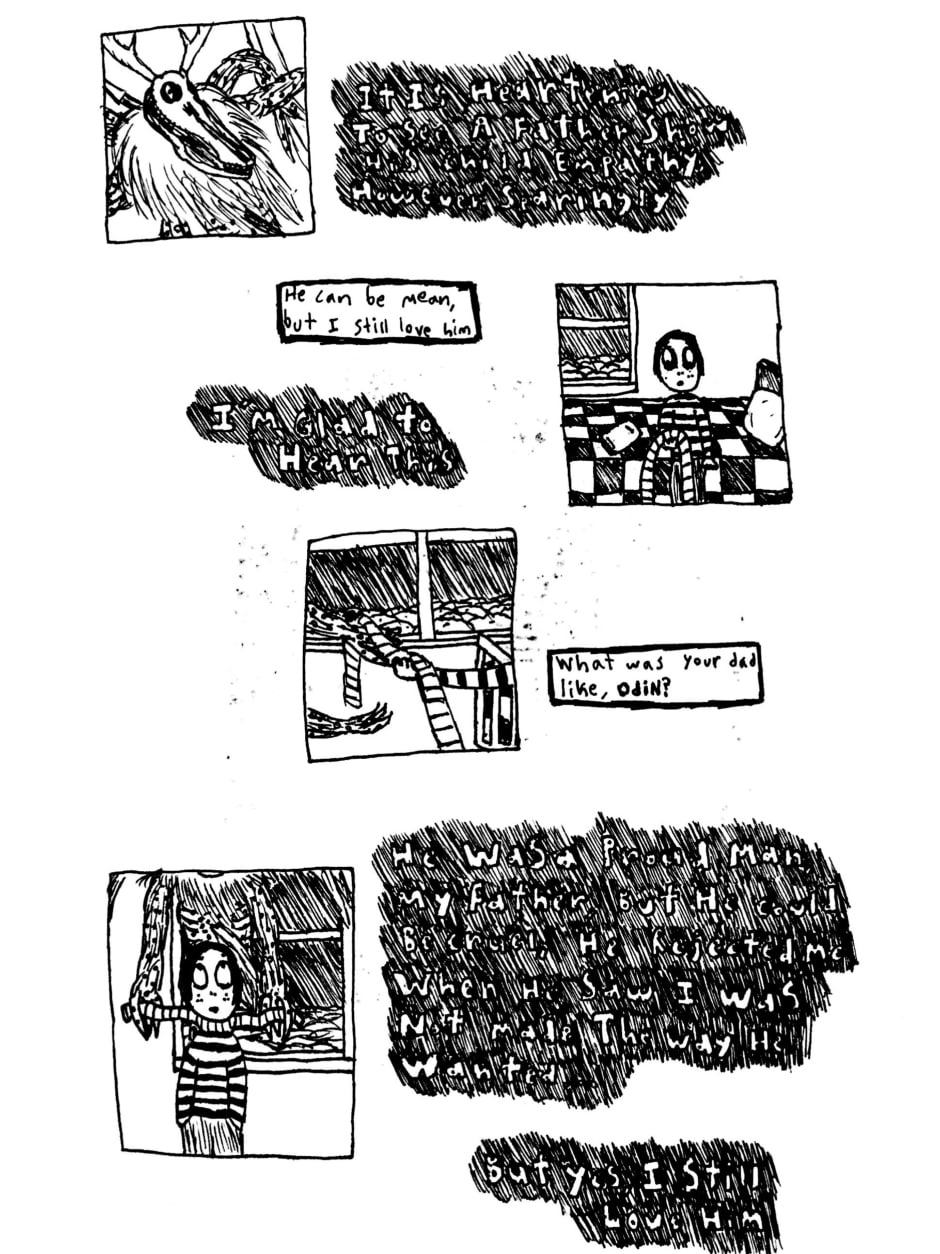 It Is Heartening
To See A Father Show
His Child Empathy,
However Sparingly
He can be mean,
but I still love him
I'm Glad to
Hear This
What was your dad
like, ODiN?
He Was a Proud Man,
My Father, But He could
Be cruel, He Rejected me
When He Saw I was
Not made The way He
Wanted...
But yes I Still
Love Him